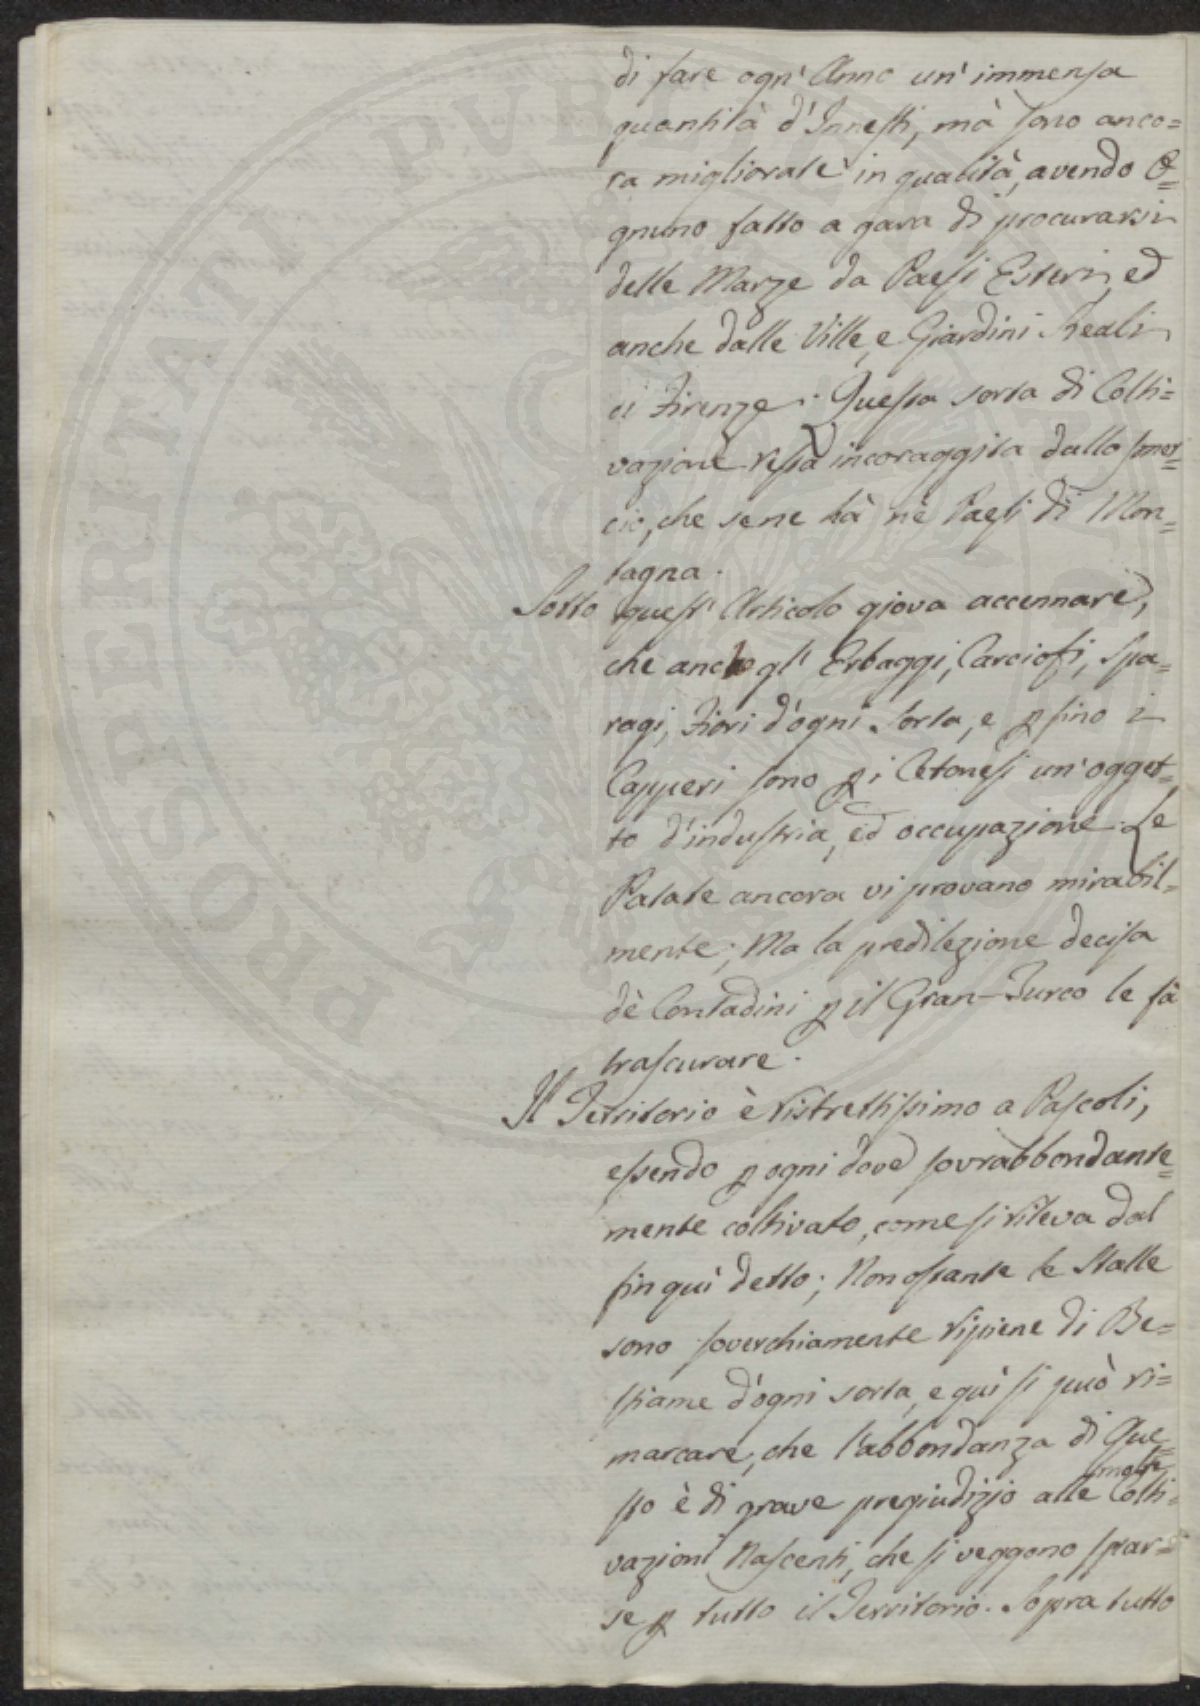 di fare ogn' Anno un' immensa
quantità d'Innesti, mà sono anco=
ra migliorate in qualità, avendo O=
gnuno fatto a gara di procurarsi
delle Marze da Paesi Esteri, ed
anche dalle Ville, e Giardini Reali
di Firenze. Questa sorta di Colti=
vazione resta incoraggita dallo smer=
cio, che se ne hà nè Paesi di Mon=
tagna.
Sotto quest' Articolo giova accennare,
che anche gl' Erbaggi, Carciofi, Spa=
ragi, Fiori d'ogni sorta, e p fino i
Capperi sono p i Cetonesi un' ogget=
to d'industria, ed occupazione. Le
Patate ancora vi provano mirabil=
mente; Ma la predilezione decisa
dè Contadini p il Gran-Turco le fà
trascurare.
Il Territorio è ristrettissimo a Pascoli,
essendo p ogni dove sovrabbondante=
mente coltivato, come si rileva dal
fin quì detto; Non ostante le Stalle
sono soverchiamente ripiene di Be=
stiame d'ogni sorta, e quì si può ri=
marcare, che l'abbondanza di Que=
sto è di grave pregiudizio alle molte Colti=
vazioni Nascenti, che si veggono spar=
se p tutto il Territorio. Sopra tutto
PROSPERITATI PUBLICAE